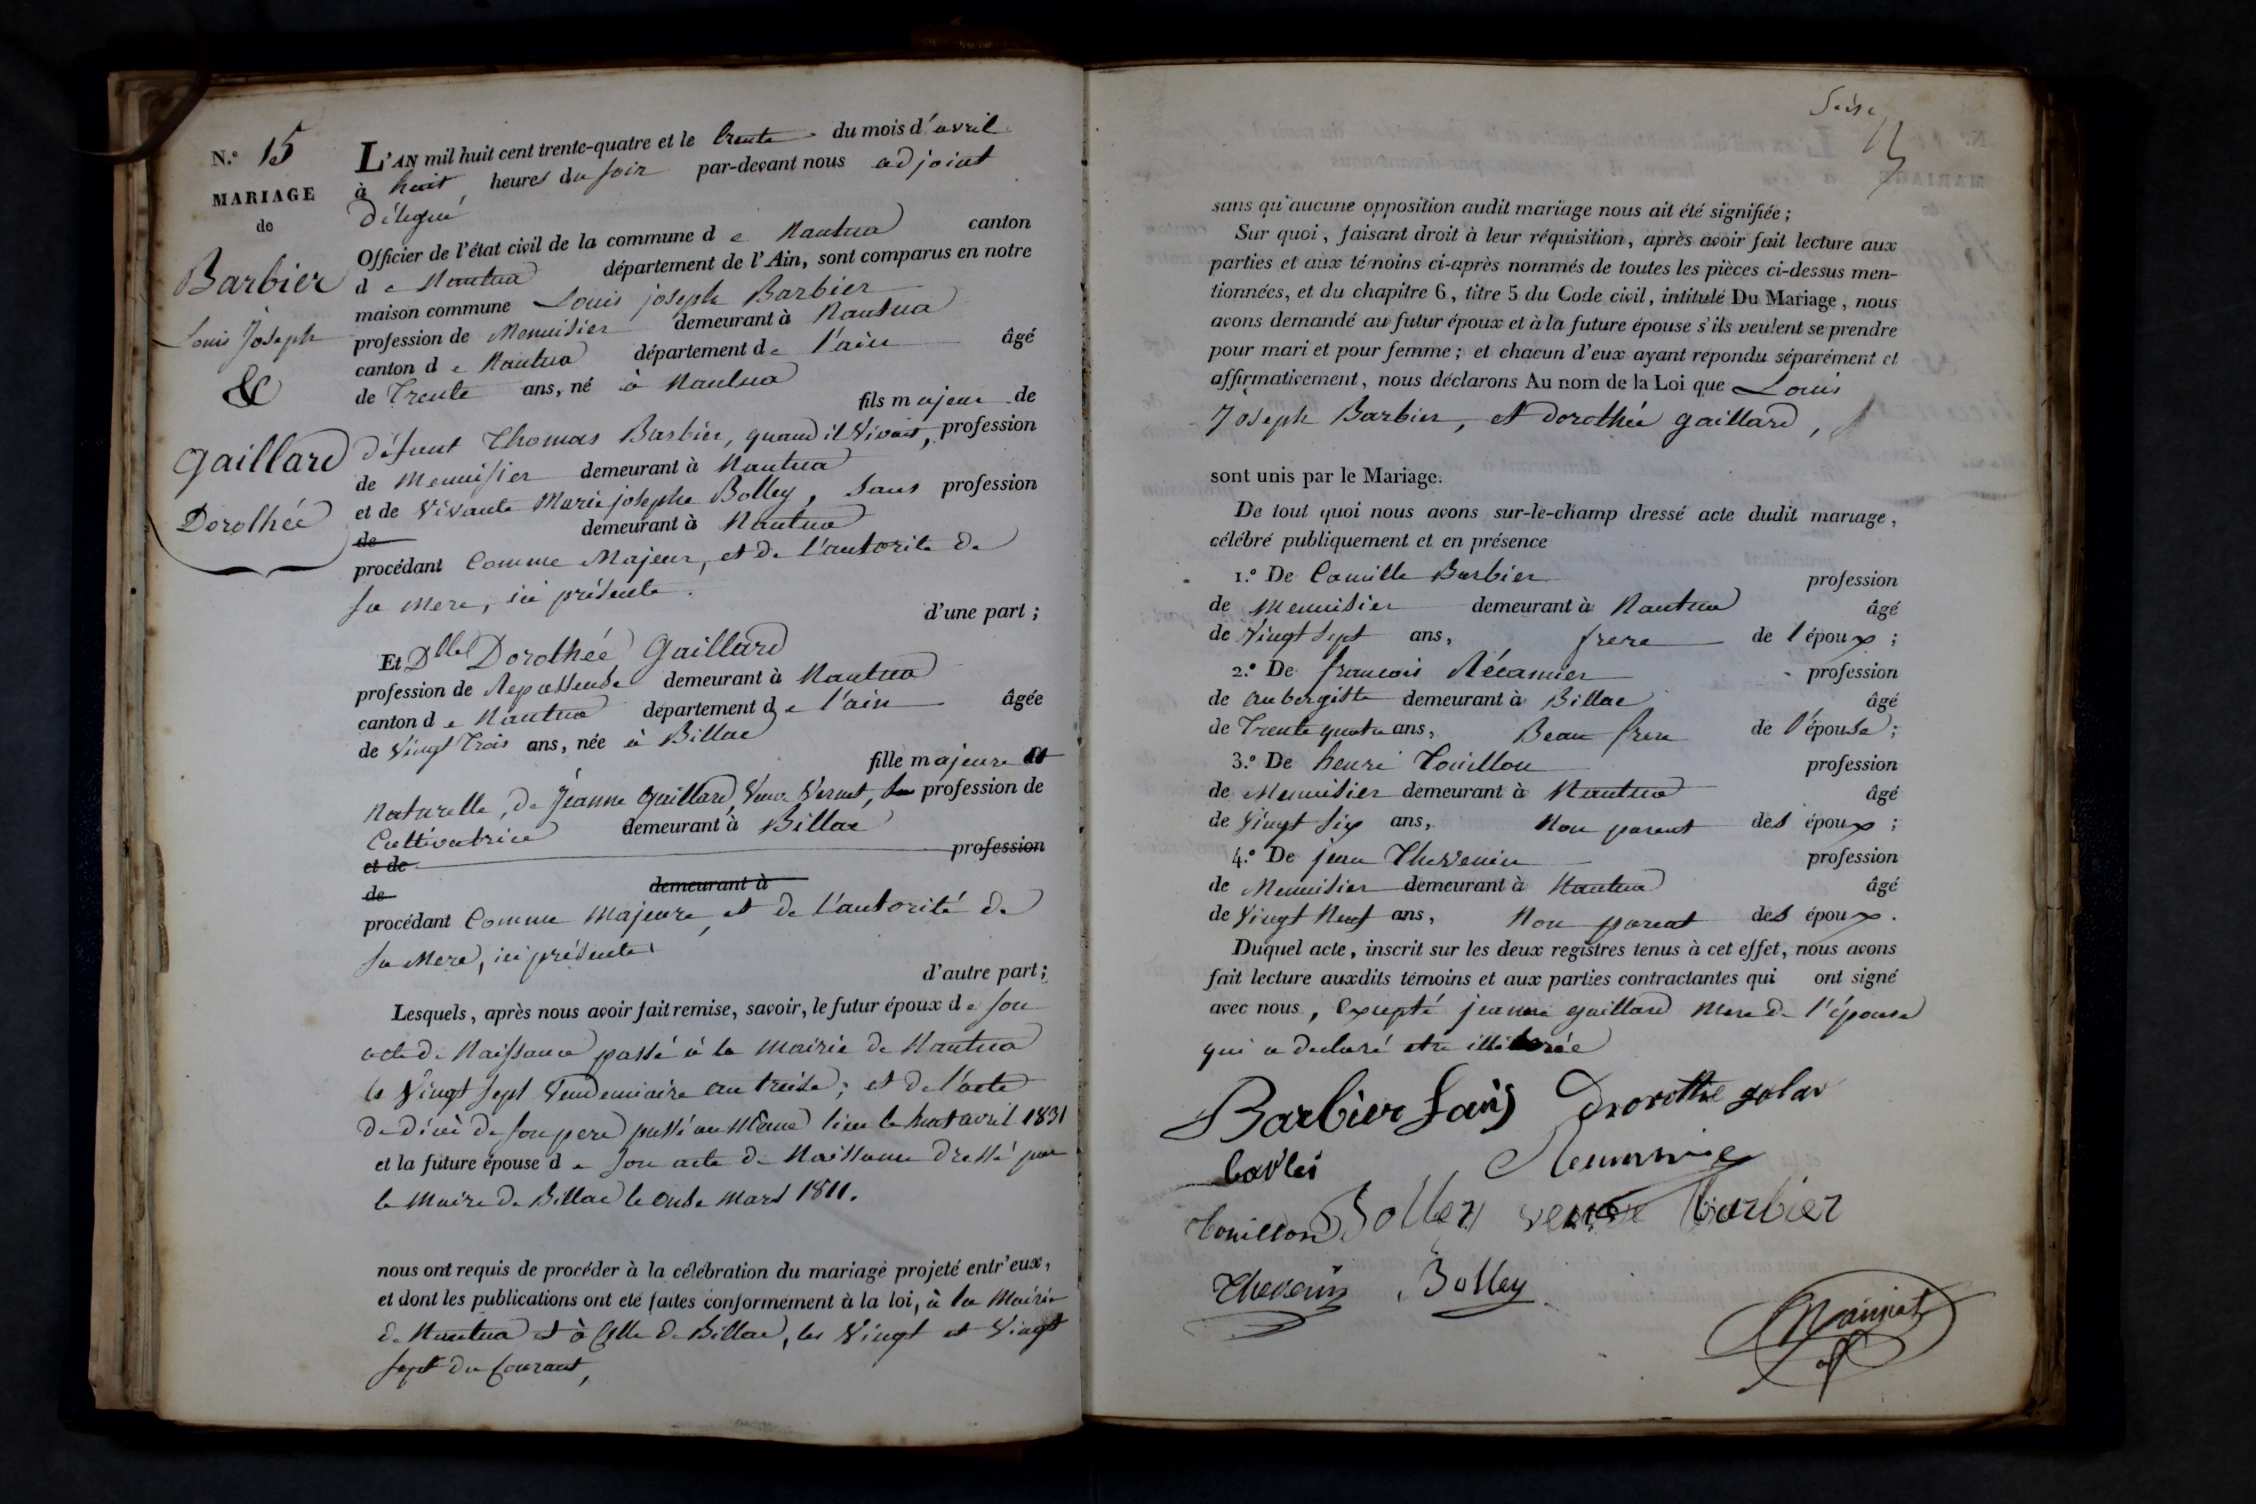 N.° 15
MARIAGE
de
Barbier
Louis Joseph
&
Gaillard
Dorothée
L'AN mil huit cent trente-quatre et le trente du mois d'avril
à huit heures du soir par-devant nous adjoint
Délégué
Officier de l'état civil de la commune de Nantua canton
de Nantua département de l'Ain, sont comparus en notre
maison commune Louis joseph Barbier
profession de Menuisier demeurant à Nantua
canton de Nantua département de l'ain âgé
de Trente ans, né à Nantua
fils majeur de
défunt Thomas Barbier, quand il vivait, profession
de Menuisier demeurant à Nantua
et de vivante Marie josephe Bolley, sans profession
de demeurant à Nantua
procédant Comme Majeur, et de l'autorité de
sa mere, ici présente.
d'une part ;
Et Dlle Dorothée Gaillard
profession de Repasseuse demeurant à Nantua
canton de Nantua département de l'ain âgée
de Vingt Trois ans, née à Billac
fille majeure et
Naturelle, de Jeanne Gaillard, Veuve Vernet, profession de
Cultivatrice demeurant à Billac
et de profession
de demeurant à
procédant Comme Majeure, et de l'autorité de
sa Mere, ici présente
d'autre part ;
Lesquels, après nous avoir fait remise, savoir, le futur époux de son
acte de Naissance passé à la Mairie de Nantua
le Vingt sept Vendemiaire an treise ; et de l'acte
de décès de son pere passé au Même lieu le huit avril 1831
et la future épouse de son acte de Naissance Dressé par
le Maire de Billac le onse Mars 1811.
nous ont requis de procéder à la célébration du mariage projeté entr'eux,
et dont les publications ont été faites conformément à la loi, à la Mairie
de Nantua et à Celle de Billac, les Vingt et Vingt
sept du Courant,
Seise
sans qu'aucune opposition audit mariage nous ait été signifiée ;
Sur quoi, faisant droit à leur réquisition, après avoir fait lecture aux
parties et aux témoins ci-après nommés de toutes les pièces ci-dessus men-
tionnées, et du chapitre 6, titre 5 du Code civil, intitulé Du Mariage, nous
avons demandé au futur époux et à la future épouse s'ils veulent se prendre
pour mari et pour femme ; et chacun d'eux ayant répondu séparément et
affirmativement, nous déclarons Au nom de la Loi que Louis
Joseph Barbier, et Dorothée gaillard,
sont unis par le Mariage.
De tout quoi nous avons sur-le-champ dressé acte dudit mariage,
célébré publiquement et en présence
1.° De Camille Barbier profession
de Menuisier demeurant à Nantua âgé
de Vingt Sept ans, frere de l'époux ;
2.° De francois Récamier profession
de aubergiste demeurant à Billac âgé
de Trente quatre ans, Beau frere de l'épouse ;
3.° De henri Touillon profession
de Menuisier demeurant à Nantua âgé
de Vingt Six ans, Non parent des époux ;
4.° De jean Thevenin profession
de Menuisier demeurant à Nantua âgé
de Vingt Neuf ans, Non parent des époux.
Duquel acte, inscrit sur les deux registres tenus à cet effet, nous avons
fait lecture auxdits témoins et aux parties contractantes qui ont signé
avec nous, Excepté jeanne gaillard Mere de l'épouse
qui a declaré etre illiterée
Barbier Louis Dorothe golar
Touillon Bolley veuve Barbier
Thevenin Bolley